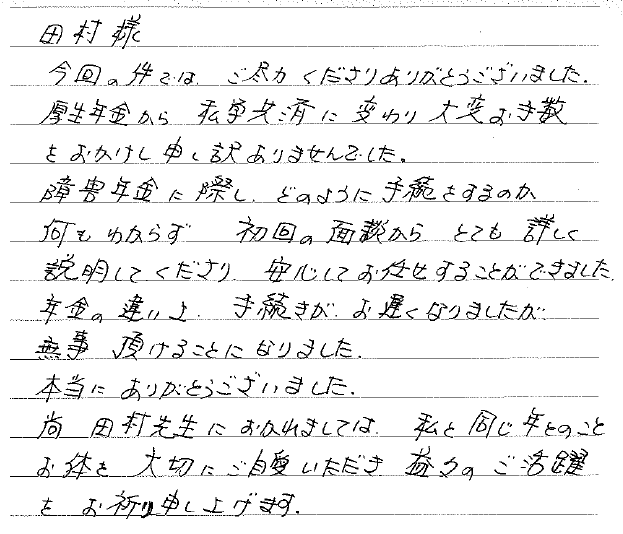 田村様
今回の件では、ご尽力くださりありがとうございました。
厚生年金から 私学共済に変わり大変お手数
をおかけし申し訳ありませんでした。
障害年金に際し、どのように手続をするのか、
何もわからず 初回の面談から とても詳しく
説明してくださり、安心してお任せすることができました。
年金の違い上、手続きが、お遅くなりましたが
無事 頂けることになりました。
本当にありがとうございました。
尚 田村先生におかれましては、私と同じ年とのこと
お体を大切にご自愛いただき 益々のご活躍
をお祈り申し上げます。